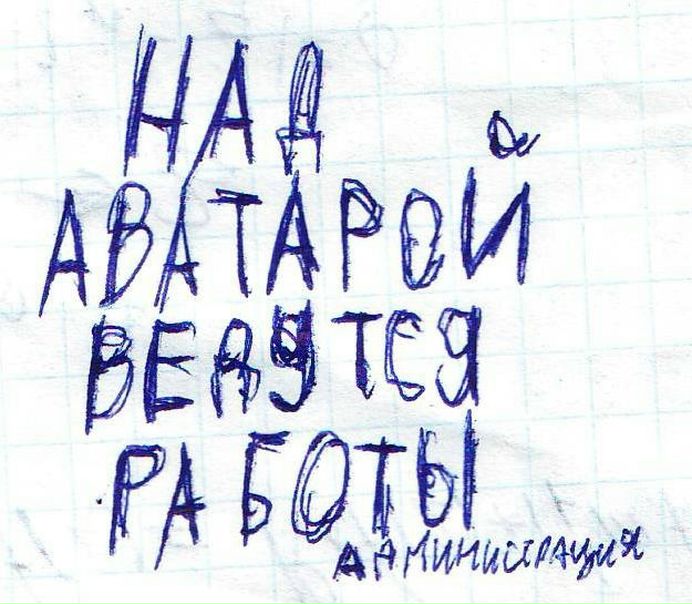 НАД
АВАТАРОЙ
ВЕДУТСЯ
РАБОТЫ
АДМИНИСТРАЦИЯ